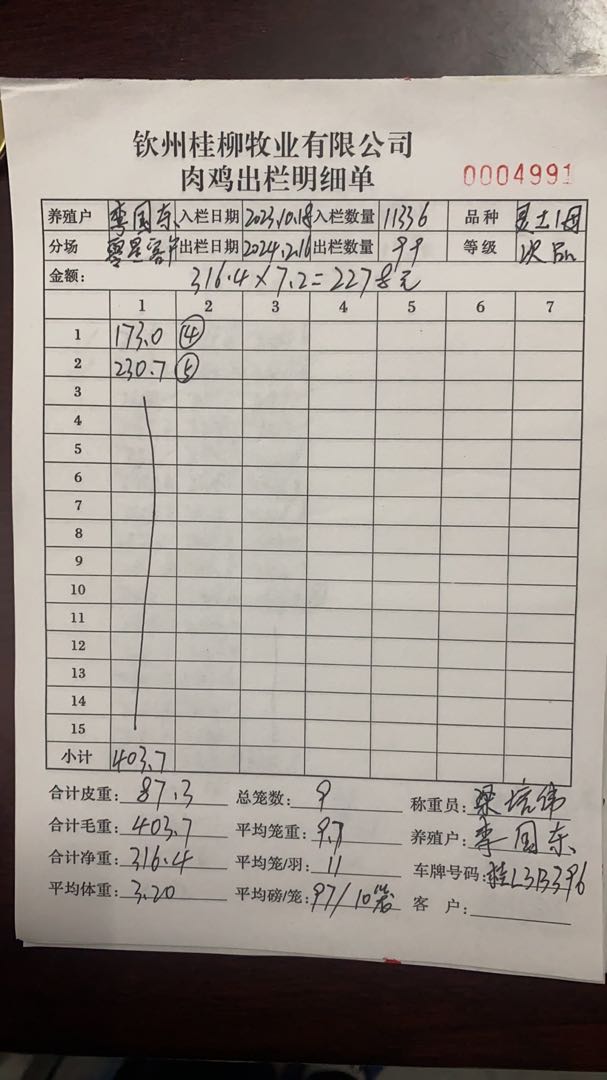 钦州桂柳牧业有限公司
肉鸡出栏明细单
0004991
养殖户 李国东 入栏日期 2023.10.18 入栏数量 11336 品种 土1母
分场 零星客户 出栏日期 2024.2.16 出栏数量 99 等级 次品
金额: 316.4×7.2=2278元
1 2 3 4 5 6 7
1 173.0 ④
2 230.7 ⑤
3
4
5
6
7
8
9
10
11
12
13
14
15
小计 403.7
合计皮重: 87.3 总笼数: 9 称重员: 梁培伟
合计毛重: 403.7 平均笼重: 9.7 养殖户: 李国东
合计净重: 316.4 平均笼/羽: 11 车牌号码: 桂L3B396
平均体重: 3.20 平均磅/笼: 97/10笼 客 户: